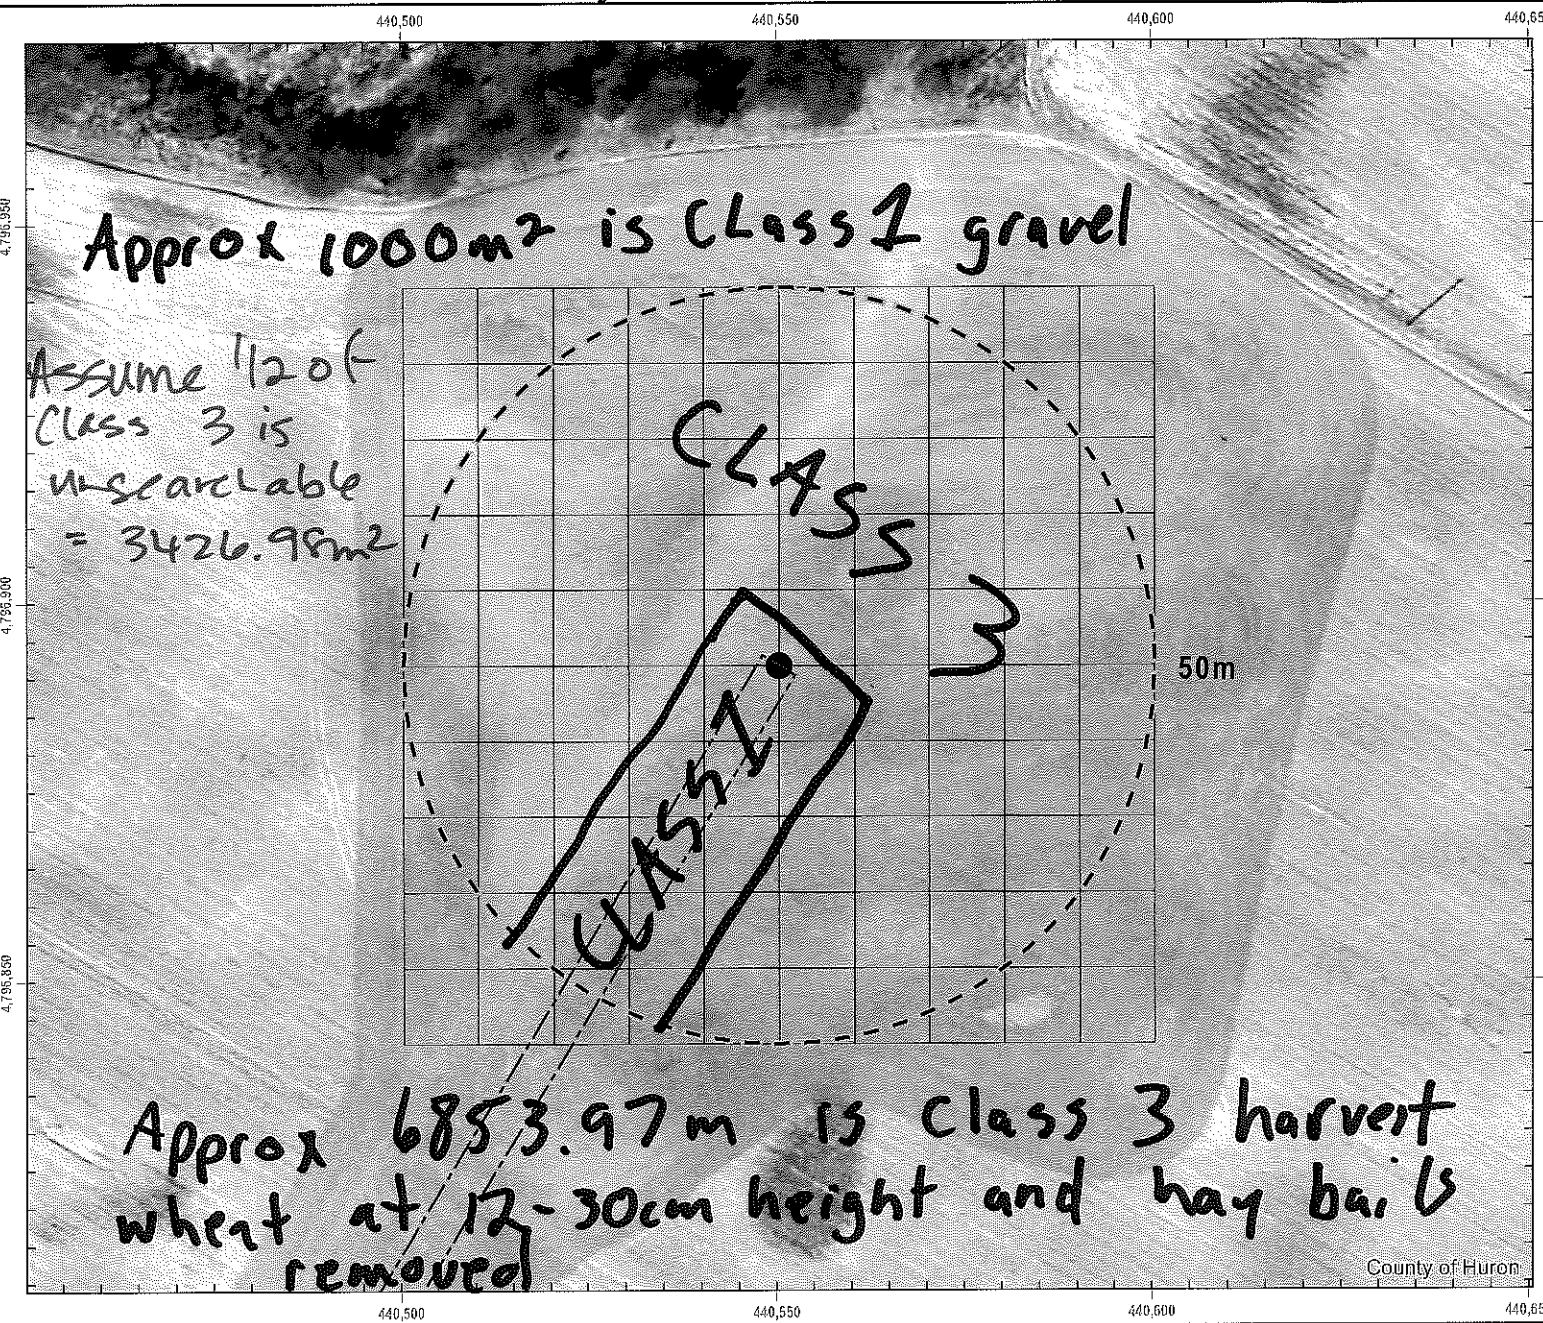 440,500 440,550 440,600 440,65
4,795,950
Approx 1000m² is Class 1 gravel
Assume 1/2 of
Class 3 is
unsearchable
= 3426.98m²
CLASS 3
4,795,900
50m
CLASS 1
4,795,850
Approx 6853.97m is Class 3 harvest
wheat at 12-30cm height and hay bails
removed
County of Huron
440,500 440,550 440,600 440,65